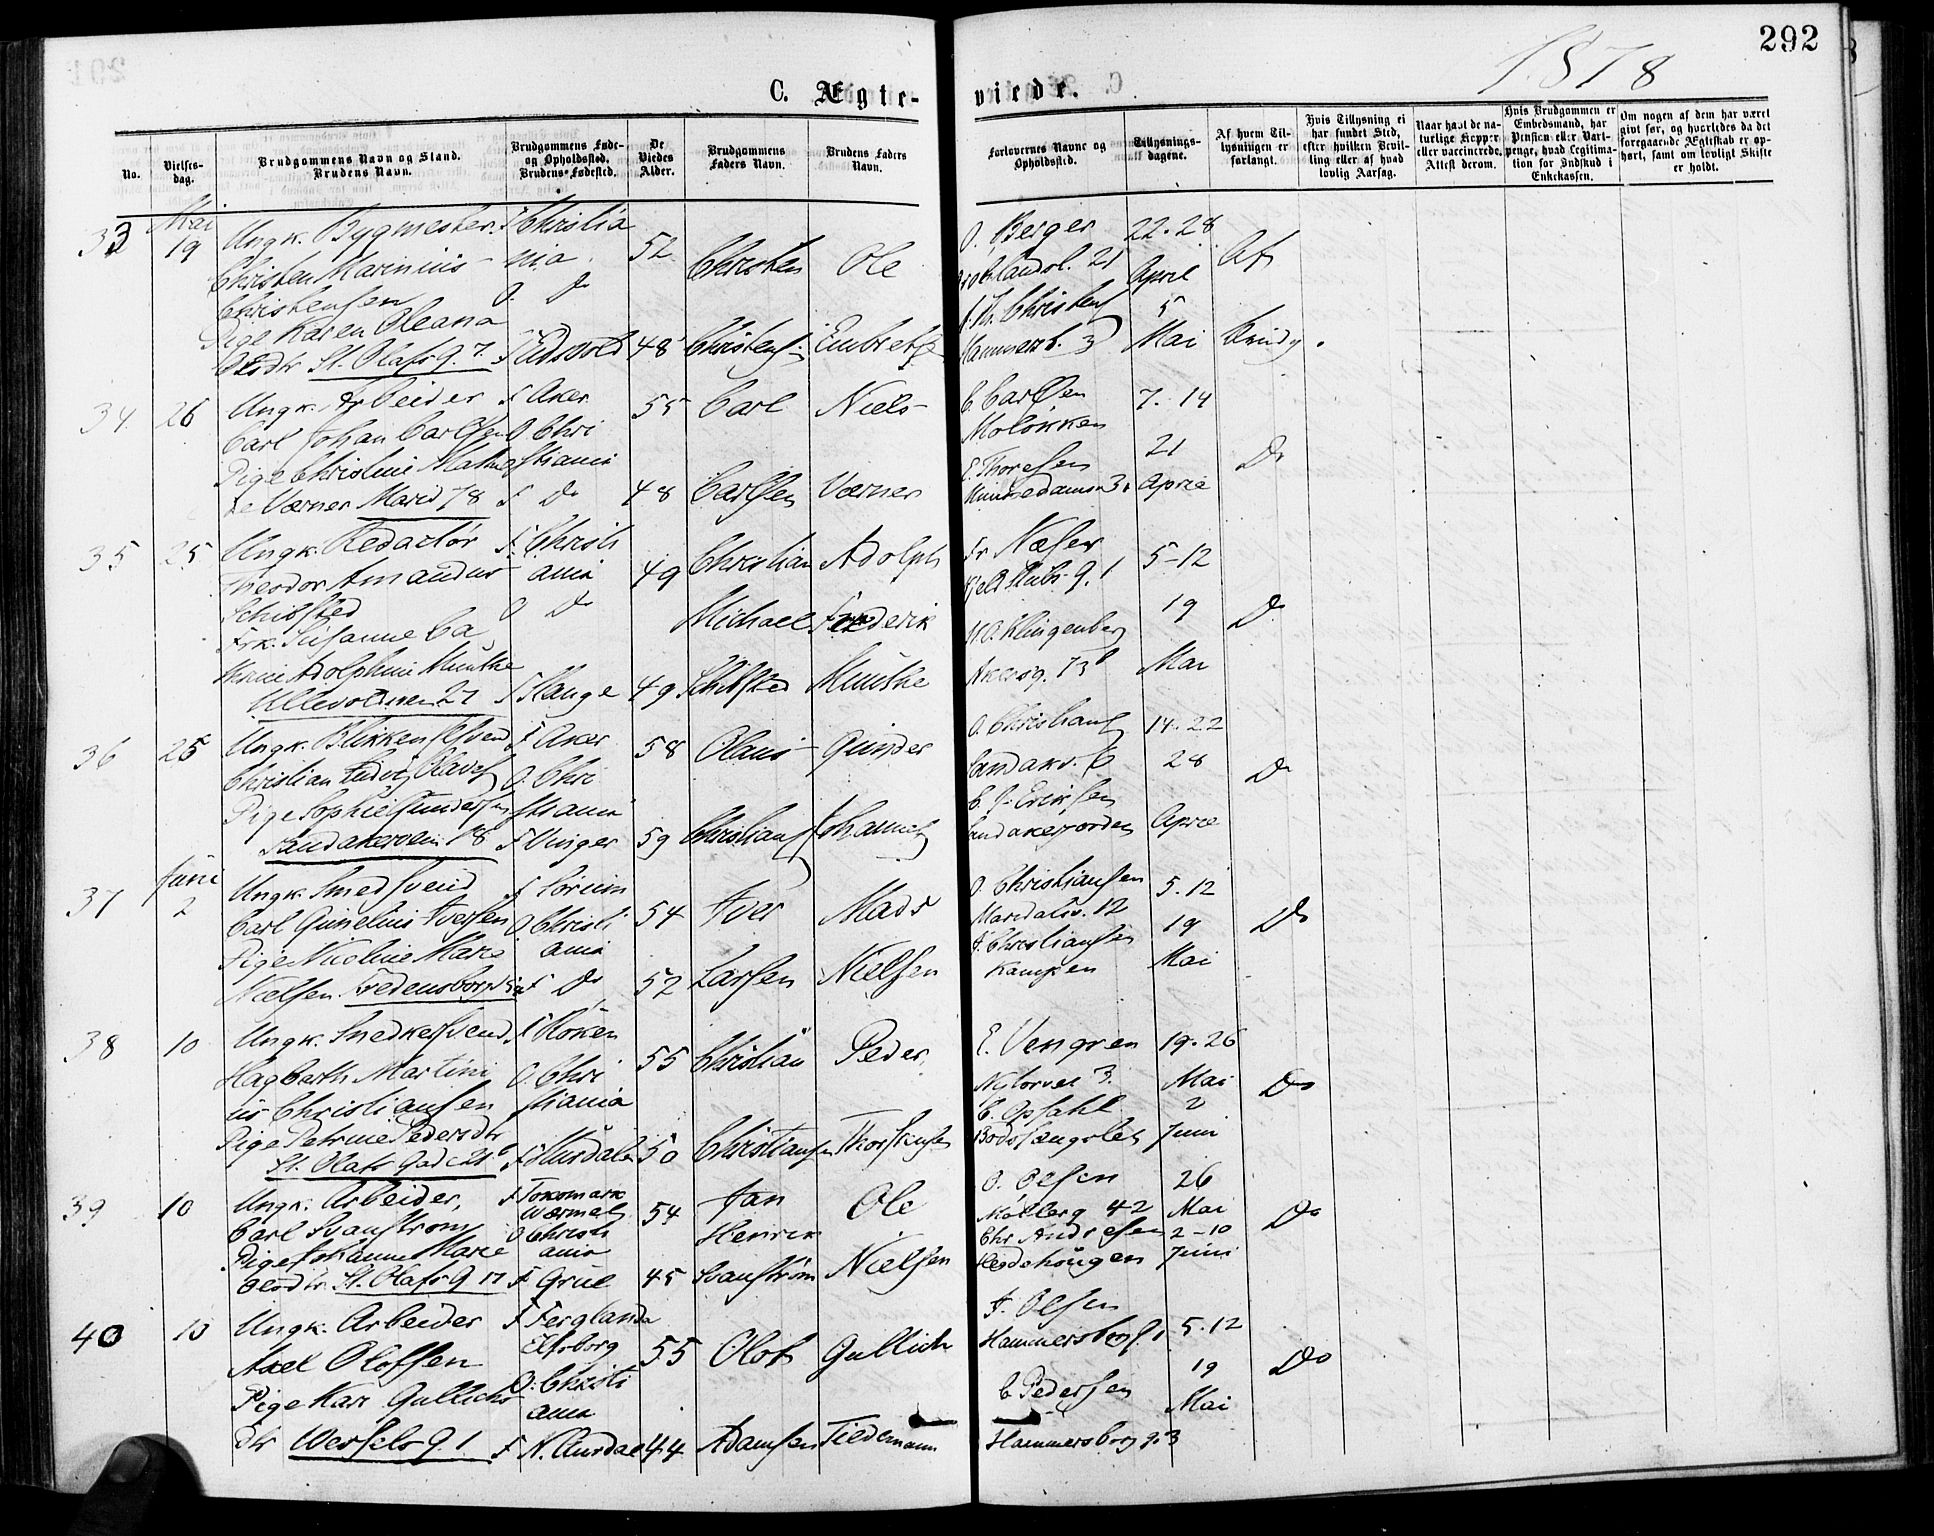 292
1878
C. Ægte-
viede.
No.
Vielses-
dag.
Brudgommens Navn og Stand.
Brudens Navn.
Brudgommens Føde-
og Opholdssted.
Brudens Fødested.
De
Viedes
Alder.
Brudgommens
Faders Navn.
Brudens Faders
Navn.
Forlovernes Navne og
Opholdssted.
Tillysnings-
dagene.
Af hvem Til-
lysningen er
forlangt.
Hvis Tillysning ei
har fundet Sted,
efter hvilken Bevil-
ling eller af hvad
lovlig Aarsag.
Naar havt de na-
turlige Kopper
eller vaccinerede.
Attest derom.
Hvis Brudgommen er
Embedsmand, har
Pension eller Vart-
penge, hvad Legitima-
tion for Indskud i
Enkekassen.
Om nogen af dem har været
givt før, og hvorledes da det
foregaaende Ægteskab er op-
hørt, samt om lovligt Skifte
er holdt.
33 Mai 19
Ungk. Bygmester
Christen Marinius
Christensen
Pige Karen Oleana
Olsdtr St. Olafs g. 7.
F Christia
nia
O. do
F Eidsvold
52
48
Christen
Christens
Ole
Embretss
O. Berger
21
Christens
Hammersb. 3
22. 28
April
5
Mai
Af
Brudg.
34 26
Ungk. Arbeider
Carl Johan Carlsen
Pige Christine Mathil
de Værner Marid 78
F Aker
O Chri
stiania
F do
55
48
Carl
Carlsen
Niels
Værner
C. Carlsen
Moløkken
E. Thoresen
Munkedamsv 31
7. 14
21
April
Do
35 25
Ungk. Redactør
Theodor Amandus
Schibsted
Frk. Susanne Ca
thrine Adolphine Munthe
Ullevoldsveien 27
F. Christi
ania
O do
F Stange
49
49
Christian
Michael
Schibsted
Adolph
Frederik
Munthe
Fr Næser
Keld Stubs g. 1
H. O. Klingenberg
Akersg. 73 b
5-12
19
Mai
Do
36 25
Ungk. Blikkenslsvend
Christian Ludvig Olaves
Pige Sophie Gundersen
Sandakerveien 18
F Aker
O. Chri
stiania
F Vinger
58
59
Olaus
Christians
Gunder
Johannes
O. Christians
Sandakv. 6
C. J. Eriksen
Sandakerjordet
14. 22
28
April
Do
37 Juni 2
Ungk. Smedsvend
Carl Gunelius Iversen
Pige Nicoline Marie
Nielsen. Fredensborgv
F Sørum
O Christi
ania
F Do
54
52
Iver
Larsen
Mads
Nielsen
O. Christiansen
Maridalsv. 12
J. Christiansen
Kampen
5. 12
19
Mai
Do
38 10
Ungk. Snedkersvend
Hagbarth Martini
us Christiansen
Pige Petrine Pedersdtr
St. Olafs Gade 21 b
F Røken
O. Chri
stiania
F Hurdalen
55
50
Christian
Christiansen
Peder
Thorstensen
E. Vengren
Nytorvet 3.
C. Opsahl
Bodsfængslet
19. 26
Mai
2
Juni
Do
39 10
Ungk. Arbeider,
Carl Svanstrøm
Pige Johanne Marie
Olsdtr. St. Olafs g 17
F Tøksmark
Wærmel
O Christi
ania
F Grue
54
45
Jan
Henrik
Svanstrøm
Ole
Nielsen
O. Olsen
Møllerg 42
Chr Andresen
Hesdehaugen
26
Mai
2-10
Juni
Do
40 10
Ungk. Arbeider
Axel Oloffsen
Pige Kari Gullichs
dtr Wessels g. 1
F Ferglanda
Elfsborg
O. Christi
ania
F N. Aurdal
55
44
Olof
Adamsen
Gullich
Tiedemann
J. Olsen
Hammersborg g. 1
C Pedersen
Hammersborg g. 3
5. 12
19
Mai
Do